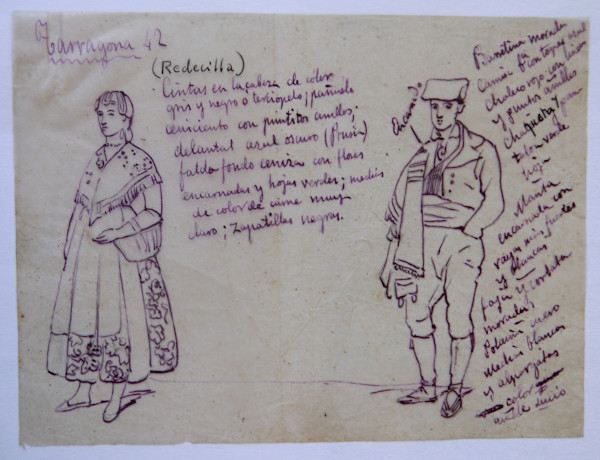 Tarragona 42
(Redecilla)
Cintas en la cabeza de color
gris y negro o terciopelo; pañuelo
ceniciento con puntitos amillos;
delantal azul oscuro (Prusia)
falda fondo ceniza con flores
encarnadas y hojas verdes; medias
de color de carne muy
claro; zapatillas negras.
Encarnado
Barretina morada
Camisa
Chaleco rojo con
y puntos amillos
Chaqueta y pan
talon verde
Manta
encarnada con
rayas verdes
y blancas
faja y corbata
moradas
Polaina cuero
Medias blancas
y alpargatas
color